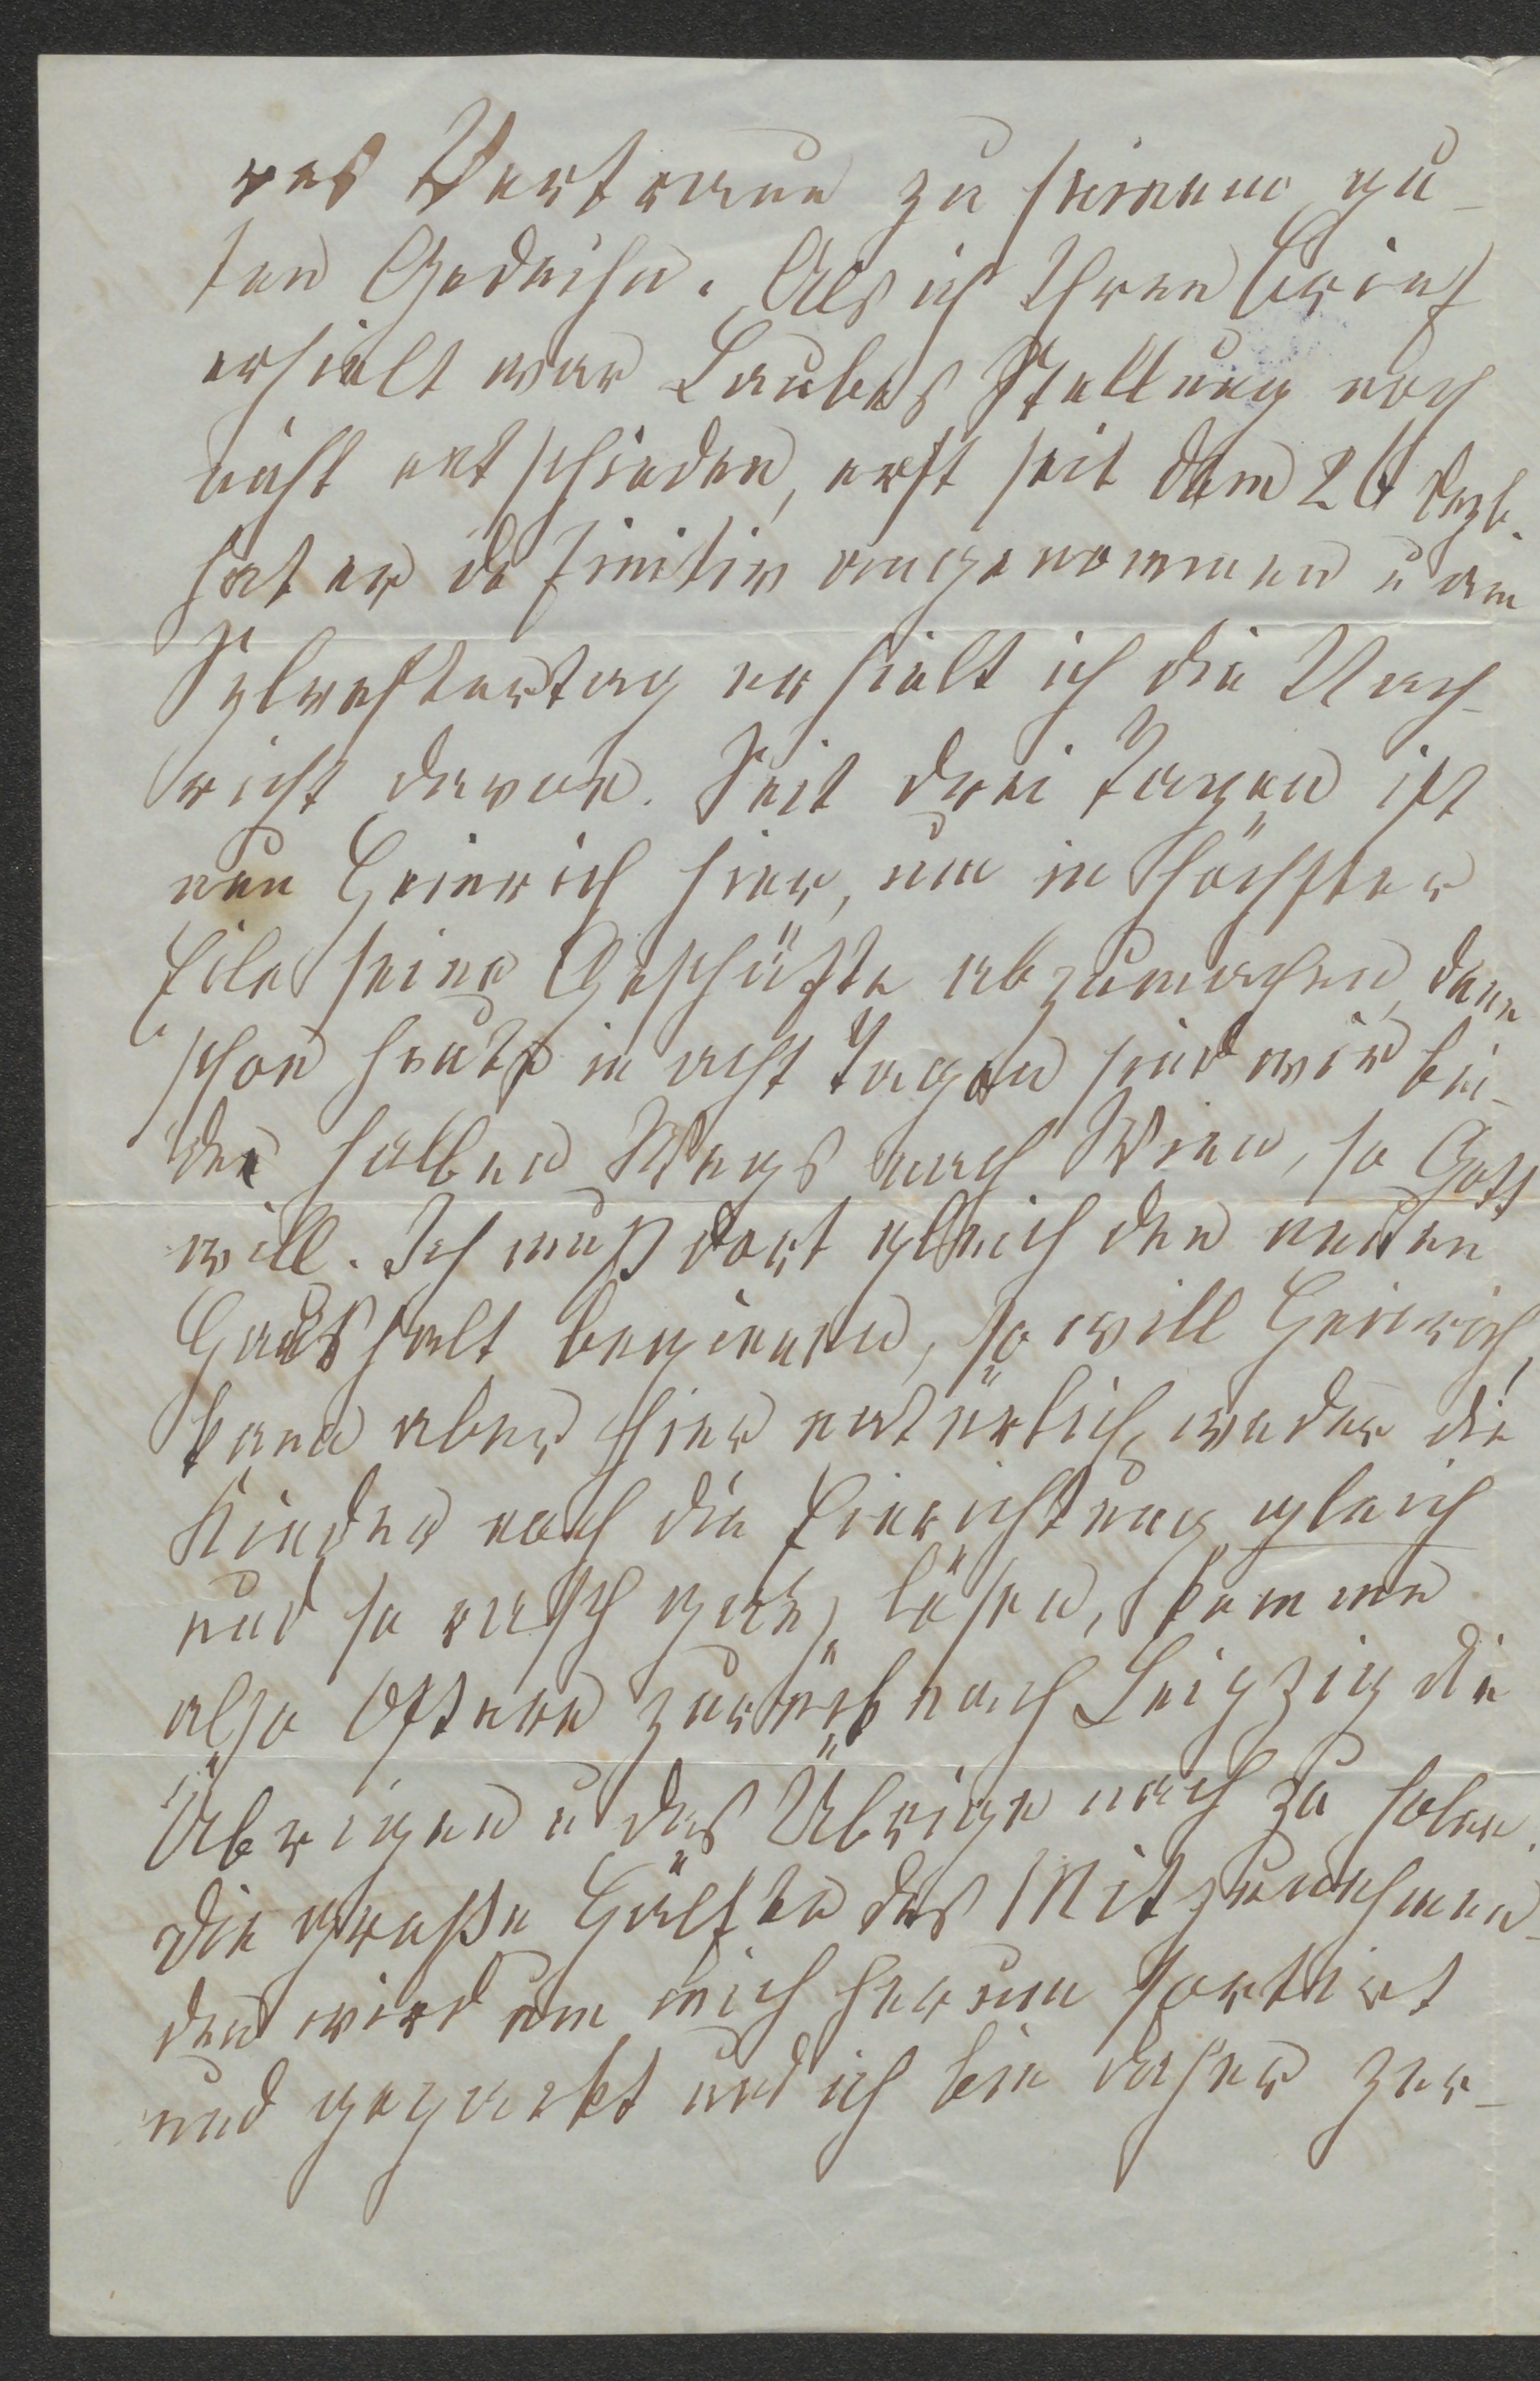 res Vertraun zu seinem gu-
ten Gedeihn. Als ich Ihren Brief
erhielt war Laubes Stellung noch
nicht entschieden, erst seit dem 26t Dezb.
hat er definitiv angenommen u am
Sylvestertag erhielt ich die Nach-
richt davon. Seit drei Tagen ist
nun Heinrich hier, um in höchster
Eile seine Geschäfte abzumachen, denn
schon heute in acht Tagen sind wir bei-
de halben Wegs nach Wien, so Gott
will. Ich muß dort gleich den neuen
Haushalt beginnen, so will Heinrich,
kann aber hier natürlich weder die
Kinder noch die Einrichtung gleich
und so rasch ganz lösen, komme
also Ostern zurück nach Leipzig die
Übrigen u das Übrige nach zu holen.
Die große Hälfte des Mitzunehmen-
den wird um mich herum sortirt
und gepackt und ich bin daher zer-